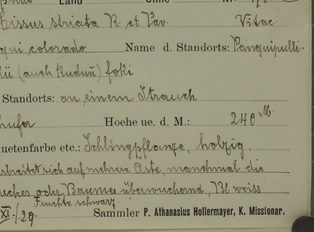 Land Chile No.
Cissus striata R. et Pav. Vitac.
oqui colorado Name d. Standorts: Panguipulli.
(auch Kuduñ) foki
Standorts: an einem Strauch
hufer Hoehe ue. d. M.: 240 M.
uetenfarbe etc.: Schlingpflanze, holzig.
arbeitet sich auf mehrere Äste, manchmal die
oder Baumes überwuchernd. Bl weiss
Fruchte schwarz
XI./29. Sammler P. Athanasius Hollermayer, K. Missionar.